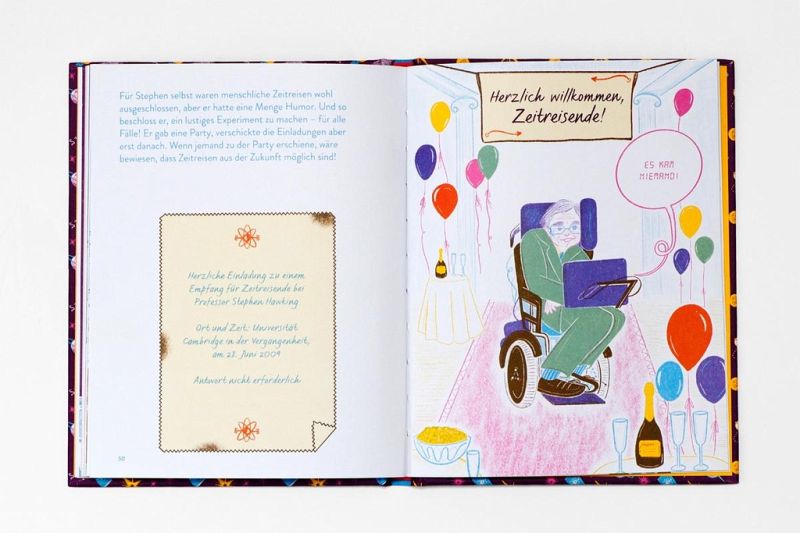 Für Stephen selbst waren menschliche Zeitreisen wohl
ausgeschlossen, aber er hatte eine Menge Humor. Und so
beschloss er, ein lustiges Experiment zu machen – für alle
Fälle! Er gab eine Party, verschickte die Einladungen aber
erst danach. Wenn jemand zu der Party erschiene, wäre
bewiesen, dass Zeitreisen aus der Zukunft möglich sind!
Herzliche Einladung zu einem
Empfang für Zeitreisende bei
Professor Stephen Hawking
Ort und Zeit: Universität
Cambridge in der Vergangenheit,
am 28. Juni 2009
Antwort nicht erforderlich
50
Herzlich willkommen,
Zeitreisende!
ES KAM
NIEMAND!